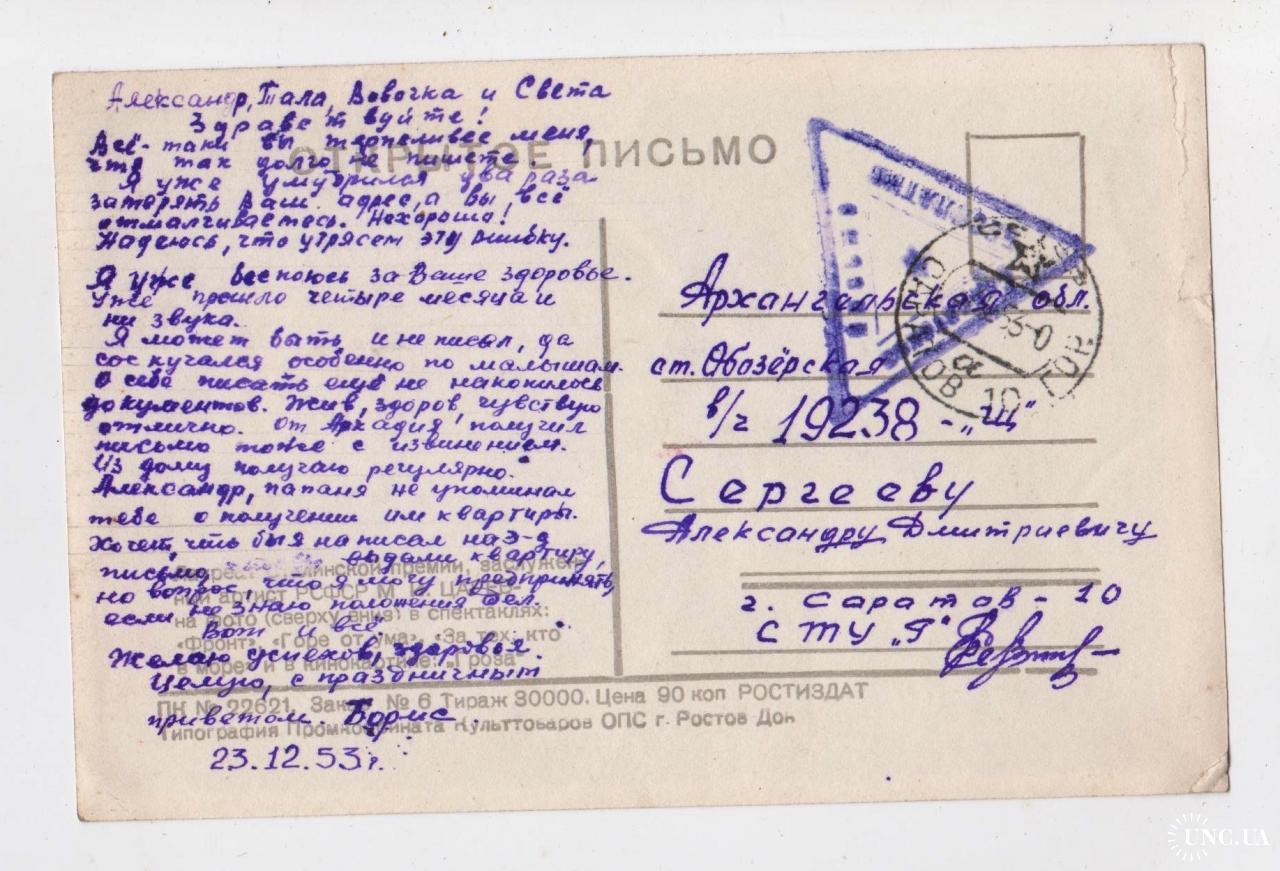 Александр, Тала, Вовочка и Света
Здравствуйте!
Всё-таки вы терпеливее меня,
что так долго не пишете.
Я уже умудрился два раза
затерять Ваш адрес, а вы всё
отмалчиваетесь. Нехорошо!
Надеюсь, что утрясем эту ошибку.
Я уже беспоюсь за Ваше здоровье.
Уже прошло четыре месяца и
ни звука.
Я может быть и не писал, да
соскучался особенно по малышам.
О себе писать ещё не накопилось
документов. Жив, здоров, чувствую
отлично. От Аркадия получил
письмо тоже с извинением.
Из дому получаю регулярно.
Александр, папаня не упоминал
тебе о получении им квартиры.
Хочет, что бы я написал на з-д
письмо, выдали квартиру,
но вопрос, что я могу предпринять,
если не знаю положения дел.
Вот и всё.
Желаю успехов, здоровья.
Целую, с праздничным
приветом. Борис.
23.12.53 г.
ОТКРЫТОЕ ПИСЬМО
премии,
артист РСФСР М.
на фото (сверху вниз) в спектаклях:
«Фронт», «Горе от ума», «За тех, кто
в море» и в кинокартине: „Гроза"
ПК № 22621. Заказ № 6 Тираж 30000. Цена 90 коп РОСТИЗДАТ
Типография Промкомбината Культтоваров ОПС г. Ростов Дон
САРАТОВ 10
Архангельская обл.
ст. Обозёрская
в/ч 19238 - „Щ"
Сергееву
Александру Дмитриевичу
г. Саратов - 10
СТУ „Я"
UNC.UA